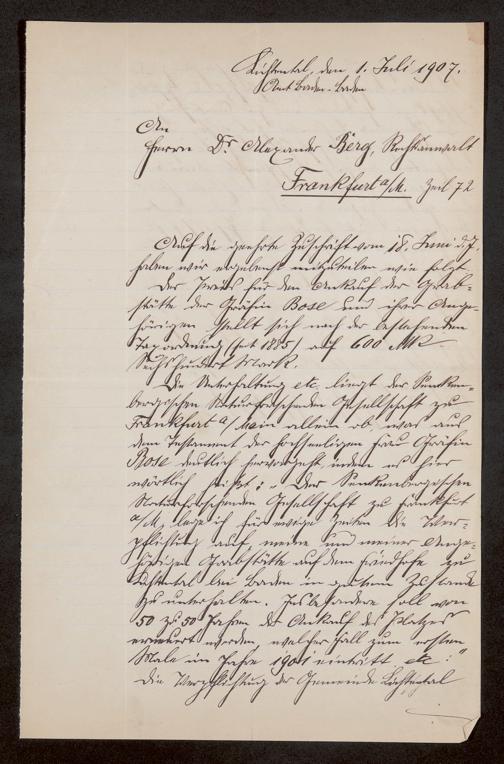 Lichtental, den 1. Juli 1907.
Amt Baden-Baden
An
Herrn Dr. Alexander Berg, Rechtsanwalt
Frankfurt a/M. Zeil 72
Auf die geehrte Zuschrift vom 18. Juni d. J.
haben wir ergebenst mitzuteilen wie folgt
Der Preis für den Ankauf der Grab-
stätte der Gräfin Bose und ihrer Ange-
hörigen stellt sich nach der bestehenden
Taxordnung (seit 1885) auf 600 Mk
Sechshundert Mark.
Die Unterhaltung etc. liegt der Senken-
bergischen Naturforschenden Gesellschaft zu
Frankfurt a/Main allein ob, was aus
dem Testament der hochseeligen Frau Gräfin
Bose deutlich hervorgeht, indem es hier
wörtlich heißt: „der Senkenbergischen
Naturforschenden Gesellschaft zu Frankfurt
a/M, lege ich für ewige Zeiten die Ver-
pflichtung auf meine und meiner Ange-
hörigen Grabstätte auf dem Friedhofe zu
Lichtental bei Baden in gutem Zustande
zu unterhalten. Insbesondere soll von
50 zu 50 Jahren der Ankauf des Platzes
erneuert werden, welcher Fall zum ersten
Male im Jahre 1901 eintritt etc:"
Die Verpflichtung der Gemeinde Lichtental